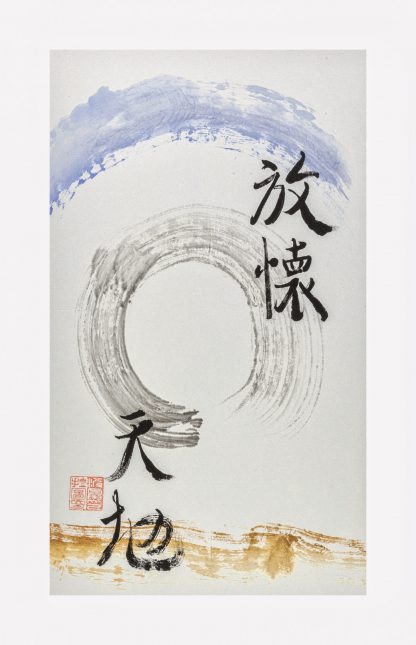 放懷
天地